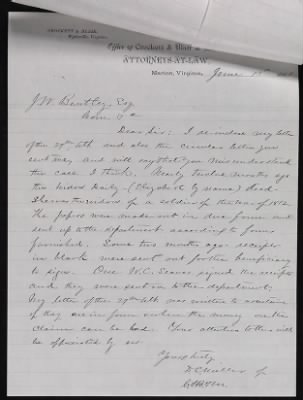 CROCKETT & BLAIR,
Wytheville, Virginia.
Office of Crockett & Blair &
ATTORNEYS-AT-LAW,
Marion, Virginia, June
J. W. Bentley, Esq
Dear Sir: I received your letter
and also the letter you
sent and will say that you misunderstand
the case I think. Nearly twelve months ago
the widow (Elizabeth by name) died.
She was the widow of a soldier of the war of 1812.
The papers were made out in due form and
sent up to the department according to forms
furnished. Some two months ago receipts
in blank were sent out for the beneficiary
to sign. One W. C. signed the receipts
and they were sent on to the department.
My letter of the was written to ascertain
if they are in form and when the money on the
claim can be had. Your attention to this will
be appreciated by us.
Yours truly,